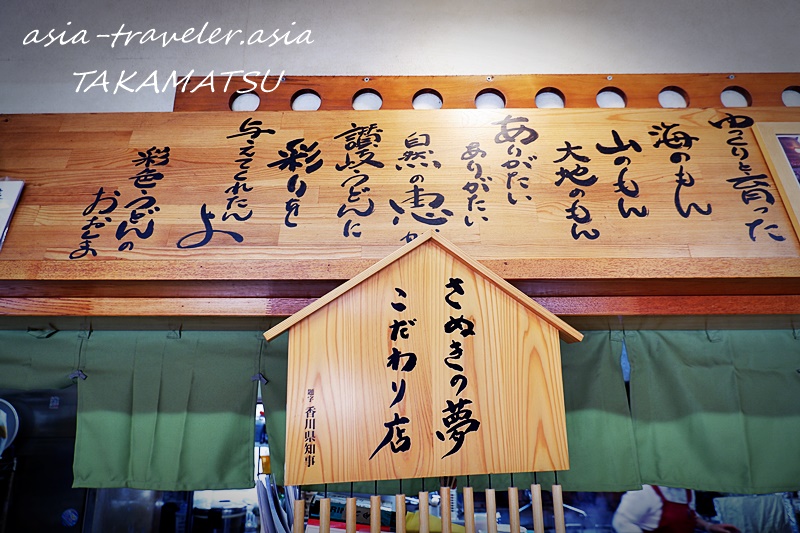 asia-traveler.asia
TAKAMATSU
ゆっくりと育った
海のもん
山のもん
大地のもん
ありがたい
ありがたい
自然の恵が
讃岐うどんに
彩りをし
与えてくれたん
よ
彩色うどんの
おおしま
さぬきの夢
こだわり店
題字 香川県知事